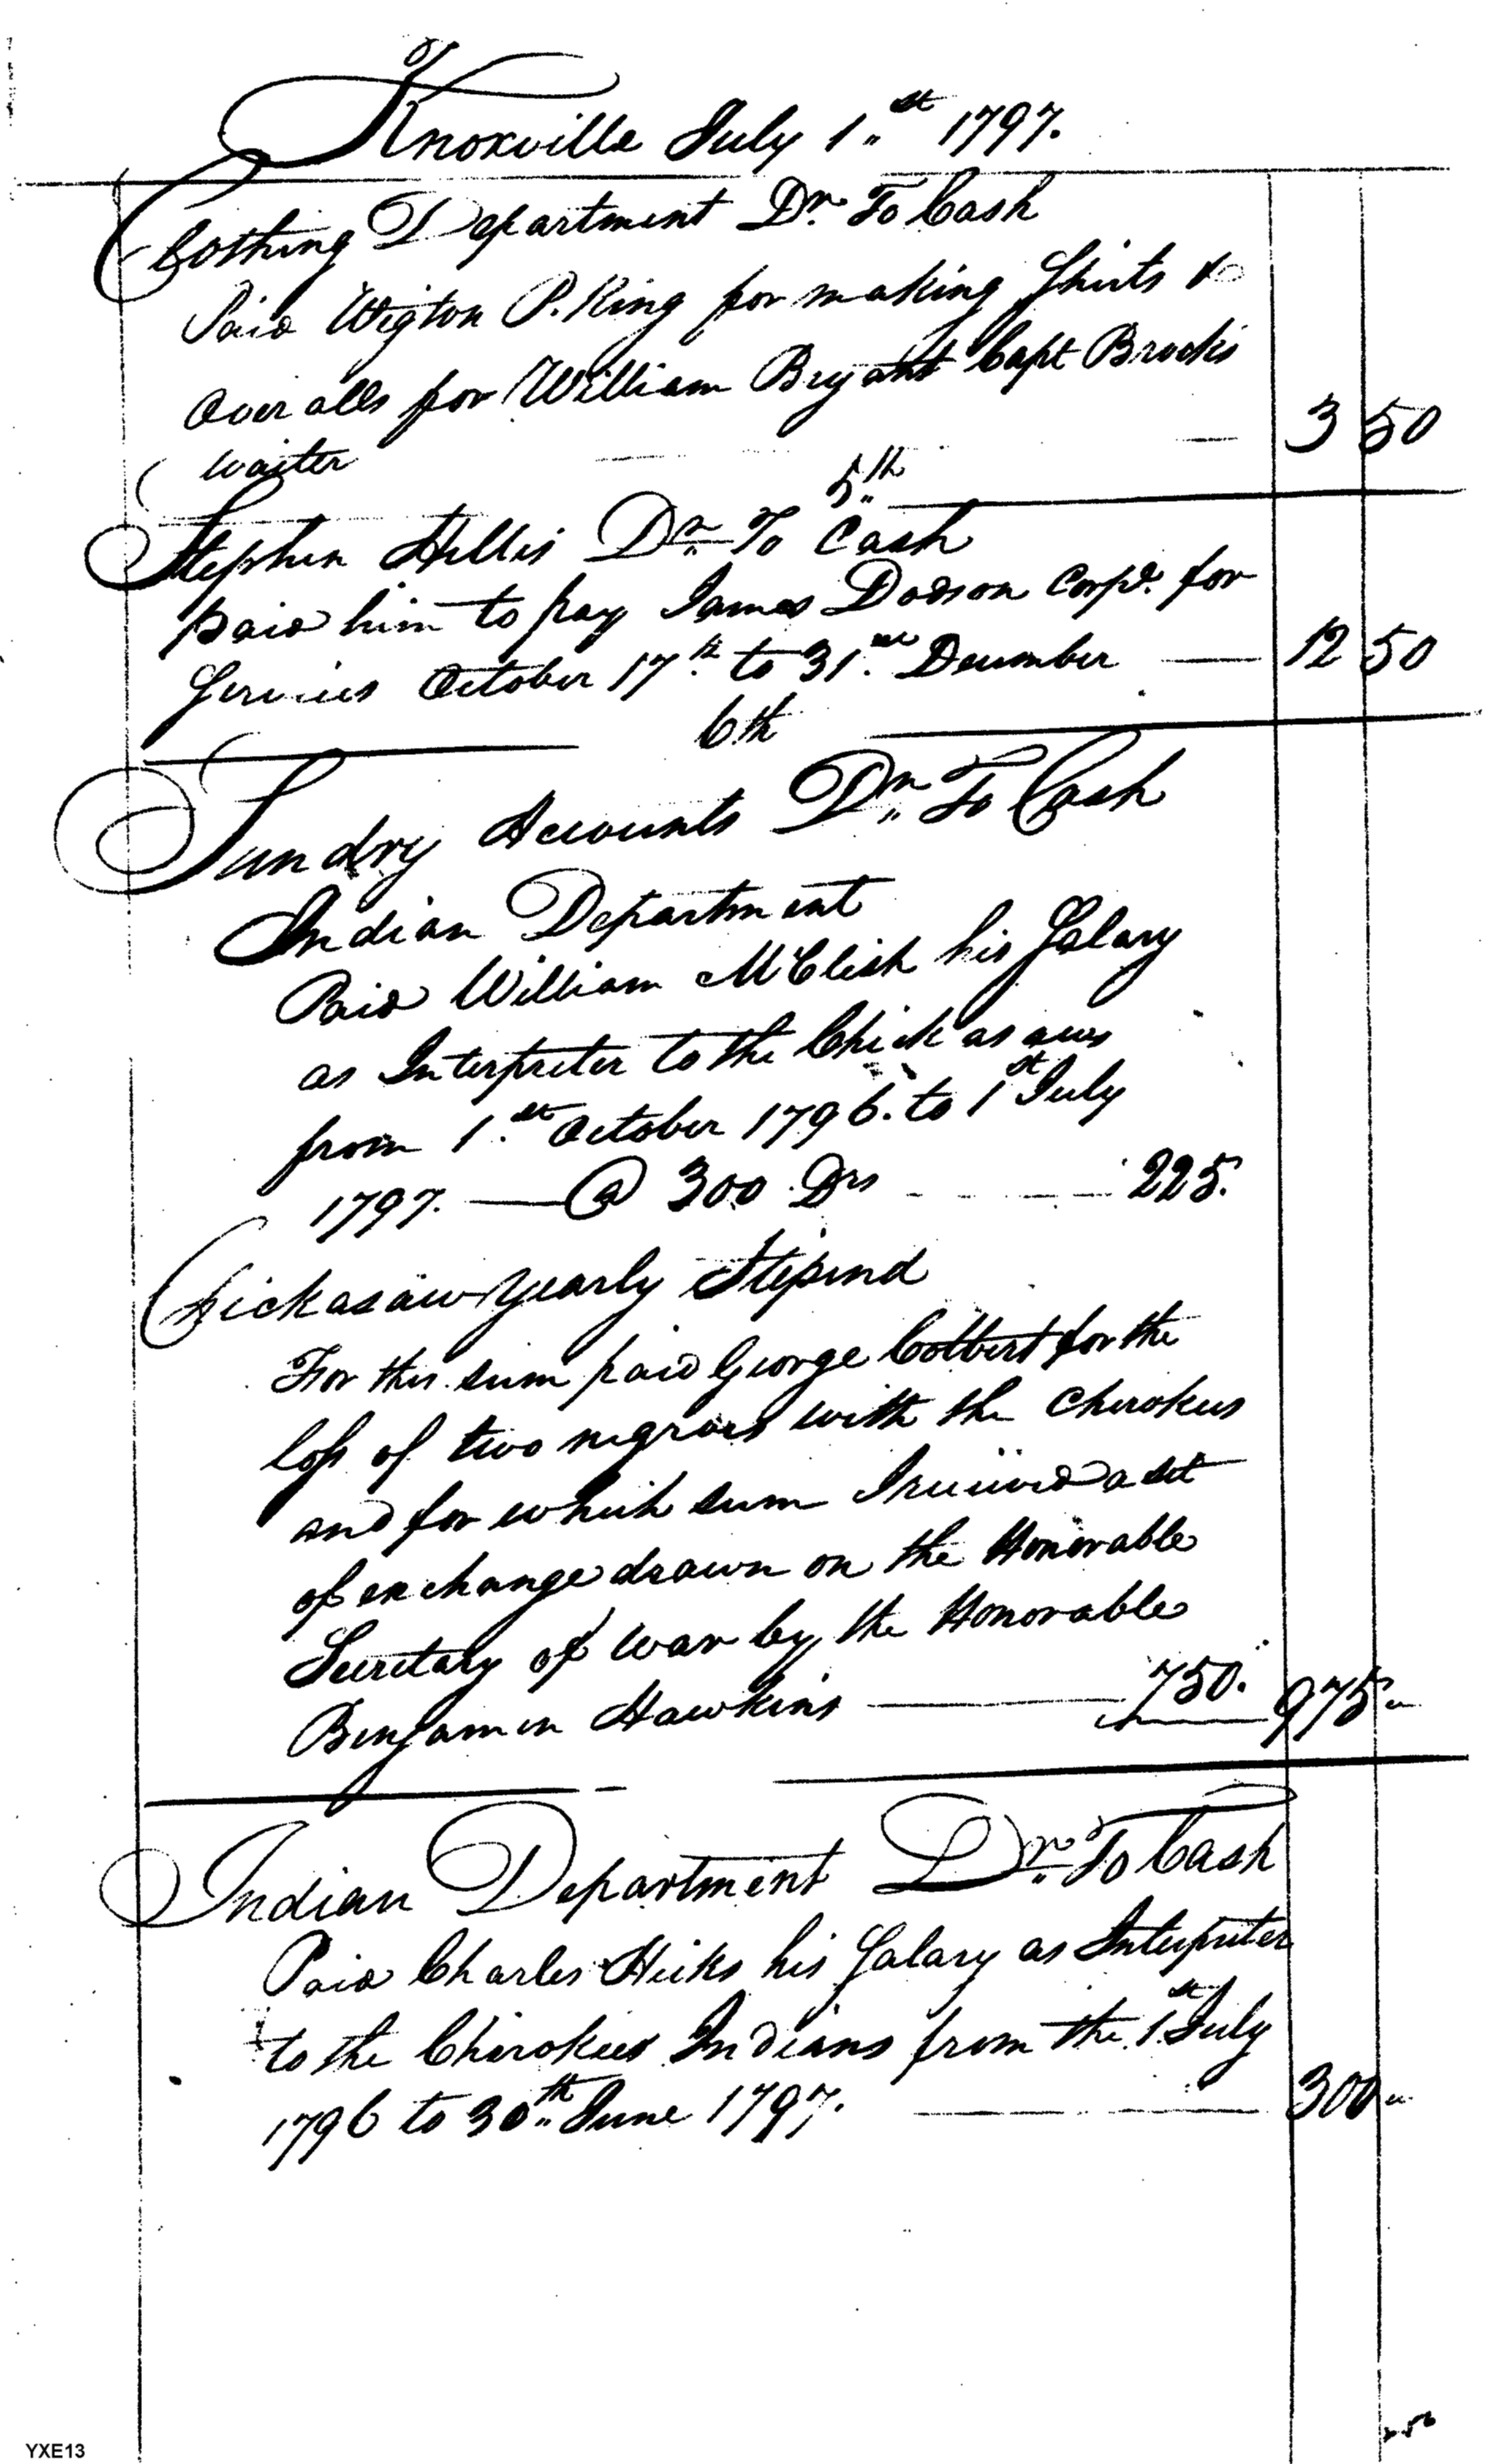 Knoxville July 1st 1797.
Clothing Department Dr. To Cash
Paid Wigton P. King for making Shirts &
Over alls for William Bryant Capt Brocks
waiter — 3 50
5th
Stephen Hillis Dr. To Cash
paid him to pay James Dodson Corpl. for
Services October 17th to 31st December — 12 50
6th
Sundry Accounts Dr. To Cash
Indian Department
Paid William McClish his Salary
as Interpreter to the Chickasaws
from 1st October 1796. to 1st July
1797. — @ 300 Drs 225.
Chickasaw Yearly Stipend
For this sum paid George Colbert for the
loss of two negroes with the Cherokees
and for which sum I received a set
of exchange drawn on the Honorable
Secretary of War by the Honorable
Benjamin Hawkins — 750. 975 "
Indian Department Dr. To Cash
Paid Charles Hicks his Salary as Interpreter
to the Cherokees Indians from the 1st July
1796 to 30th June 1797. — 300 "
YXE13